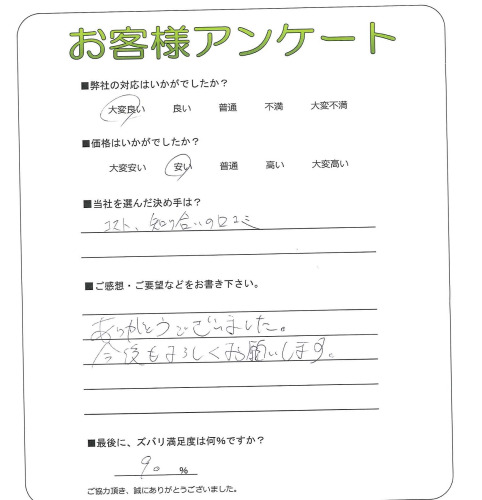 お客様アンケート
■弊社の対応はいかがでしたか？
大変良い 良い 普通 不満 大変不満
■価格はいかがでしたか？
大変安い 安い 普通 高い 大変高い
■当社を選んだ決め手は？
コスト、知り合いの口コミ
■ご感想・ご要望などをお書き下さい。
ありがとうございました。
今後もよろしくお願いします。
■最後に、ズバリ満足度は何%ですか？
90 %
ご協力頂き、誠にありがとうございました。